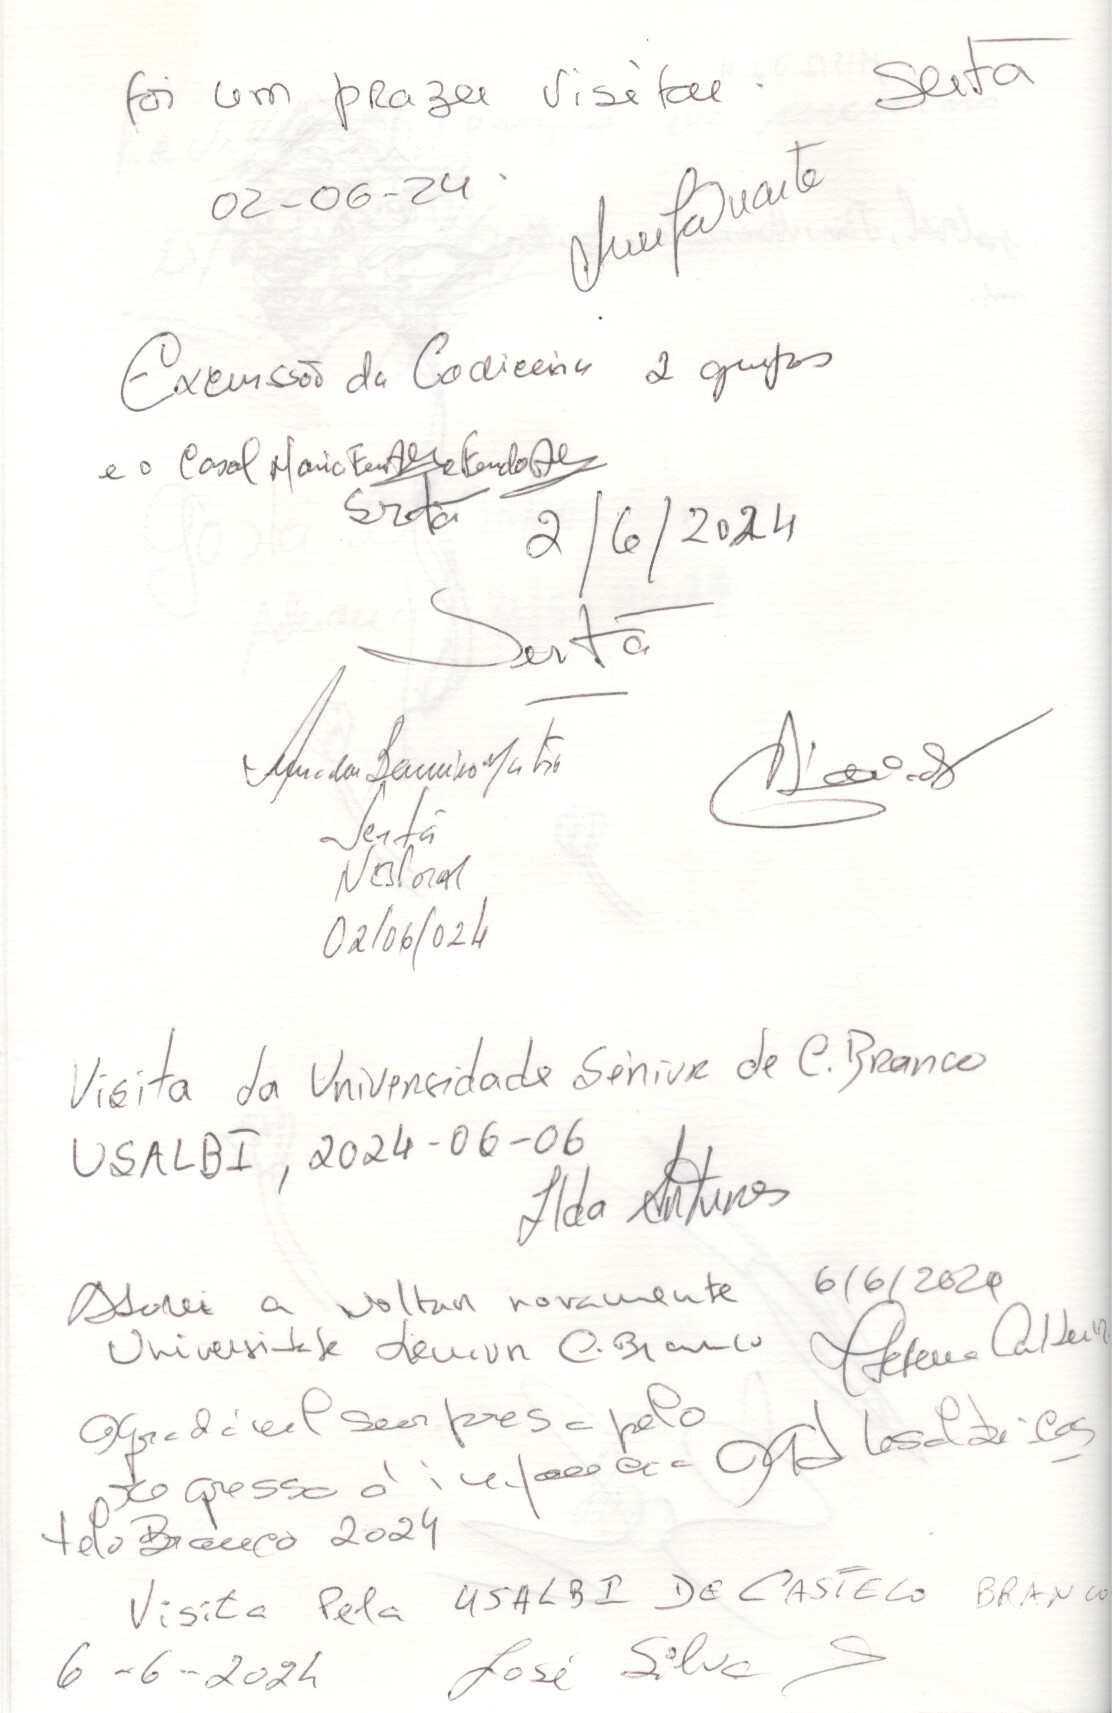 foi um prazer visitar. Sertã
02-06-24
Duarte
Excurssão da Codiceira 2 grupos
e o Casal Maria
Sertã
2/6/2024
Sertã
Sertã
Nesperal
02/06/024
Visita da Universidade Séniur de C. Branco
USALBI, 2024-06-06
Ilda Antunes
Adorei a voltar novamente 6/6/2024
Universidade Senior C. Branco Helena Caldeira
Agradável surpresa pelo
regresso à infância
telo Branco 2024
Visita Pela USALBI DE CASTELO BRANCO
6-6-2024 José Silva